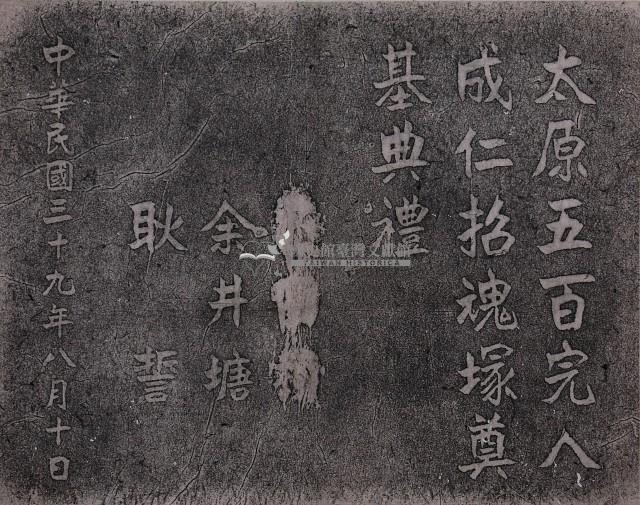 太原五百完人
成仁招魂塚奠
基典禮
余井塘
耿　誓
中華民國三十九年八月十日
TAIWAN HISTORICA